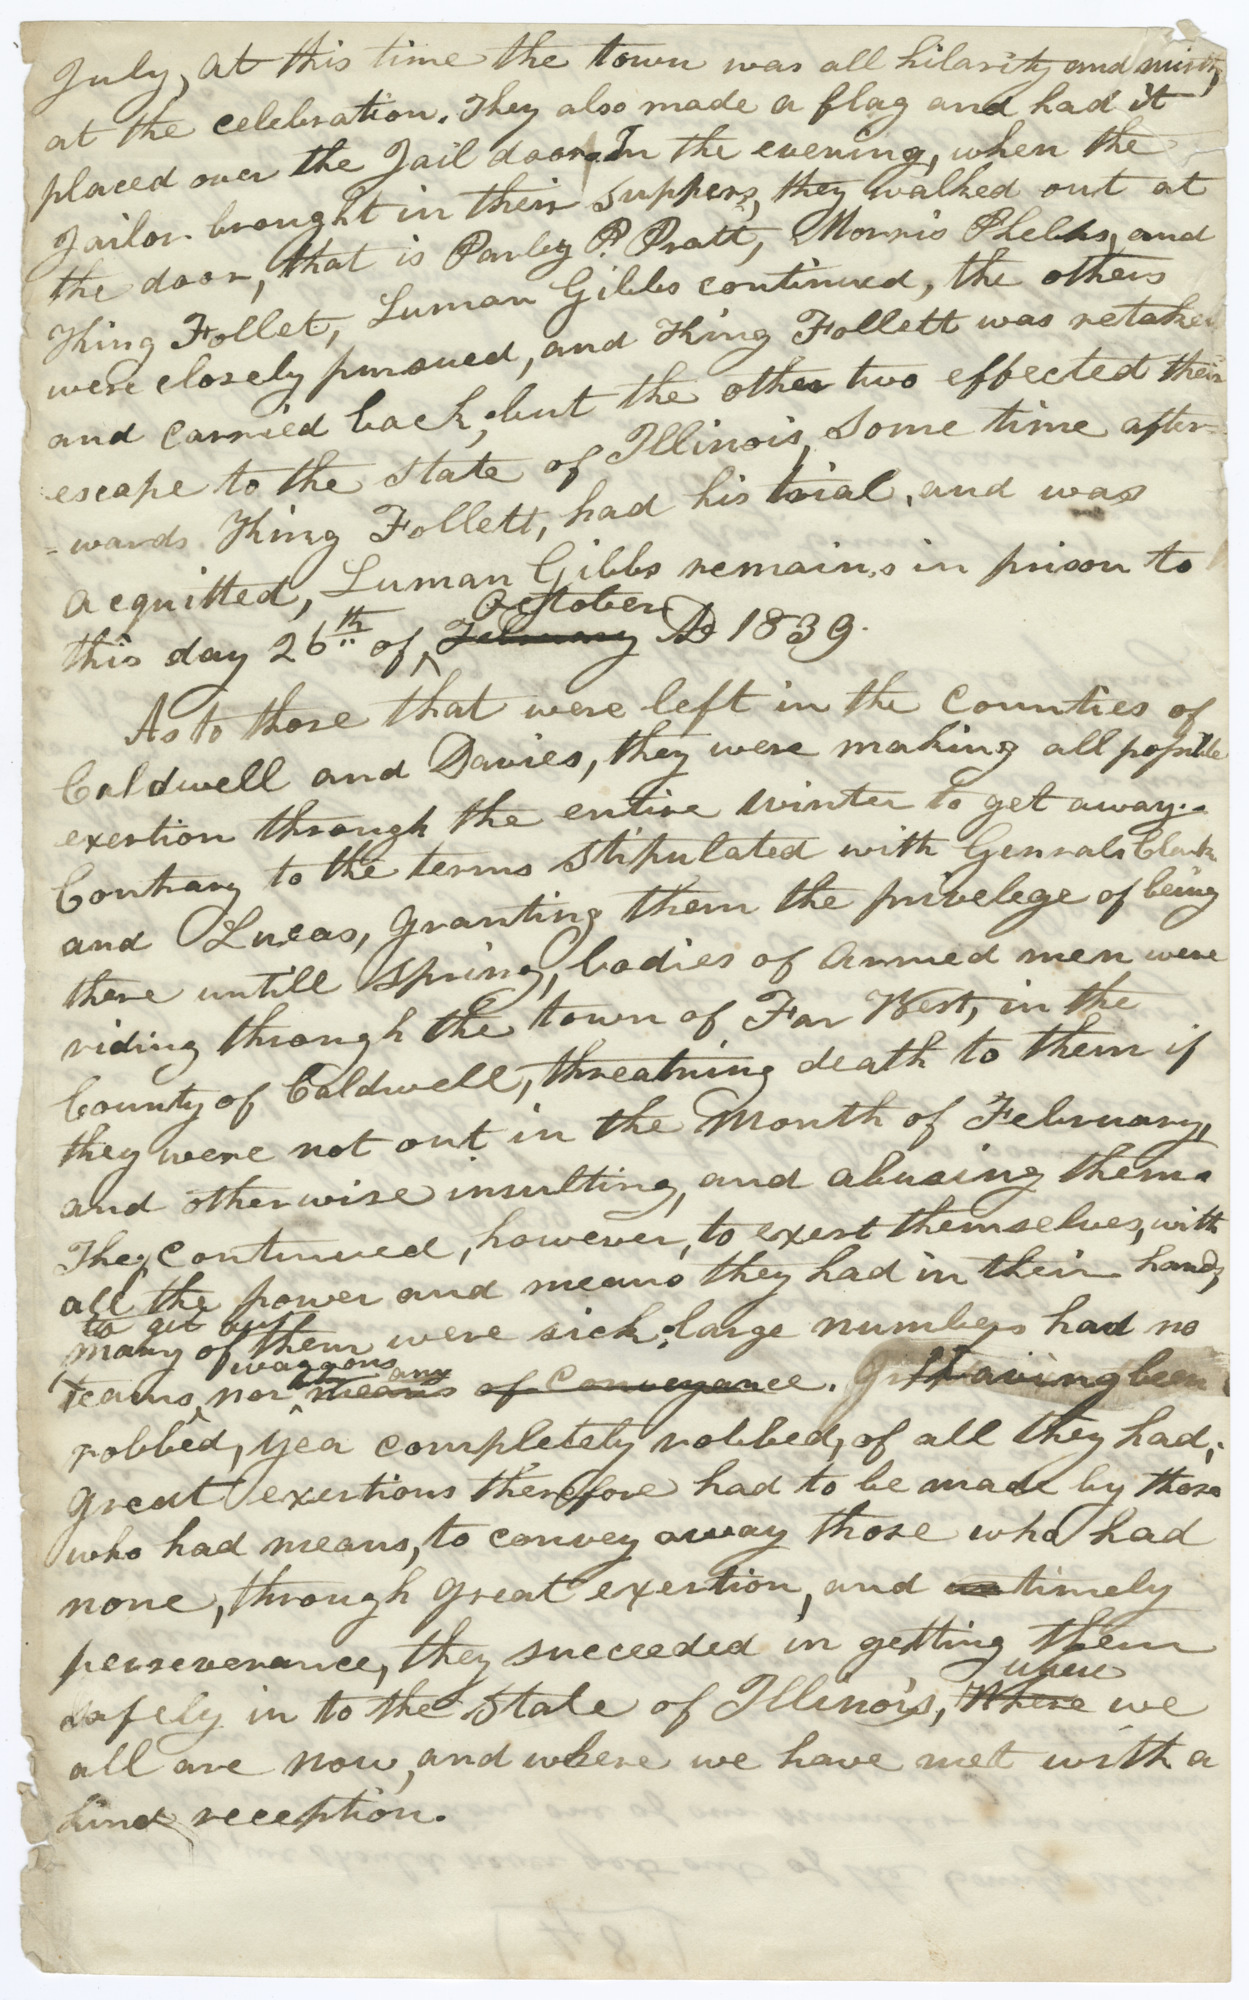 July, at this time the town was all hilarity and mirth,
at the celebration. They also made a flag and had it
placed over the Jail door. In the evening, when the
Jailor brought in their suppers, they walked out at
the door, that is Parley P. Pratt, Morris Phelps, and
King Follet, Luman Gibbs continued, the others
were closely pursued, and King Follett was retaken
and carried back, but the other two effected their
escape to the State of Illinois, Some time after-
-wards King Follett, had his trial, and was
acquitted, Luman Gibbs remains in prison to
October
this day 26th of, February AD 1839.
As to those that were left in the Counties of
Caldwell and Davies, they were making all possible
exertion through the entire winter to get away.
Contrary to the terms stipulated with Generals Clark
and Lucas, granting them the privelege of being
there untill spring, bodies of armed men were
riding through the town of Far West, in the
County of Caldwell, threatning death to them if
they were not out in the Month of February,
and otherwise insulting, and abusing them.
They continued, however, to exert themselves, with
all the power and means they had in their hands,
to get out
many of them were sick; large numbers had no
waggons any
teams, nor means of conveyance. Having been
robbed, yea completely robbed, of all they had;
great exertions therefore had to be made by those
who had means, to convey away those who had
none, through great exertion, and timely
perseverance, they succeeded in getting them
where
safely in to the State of Illinois, Where we
all are now, and where we have met with a
kind reception.
(84)